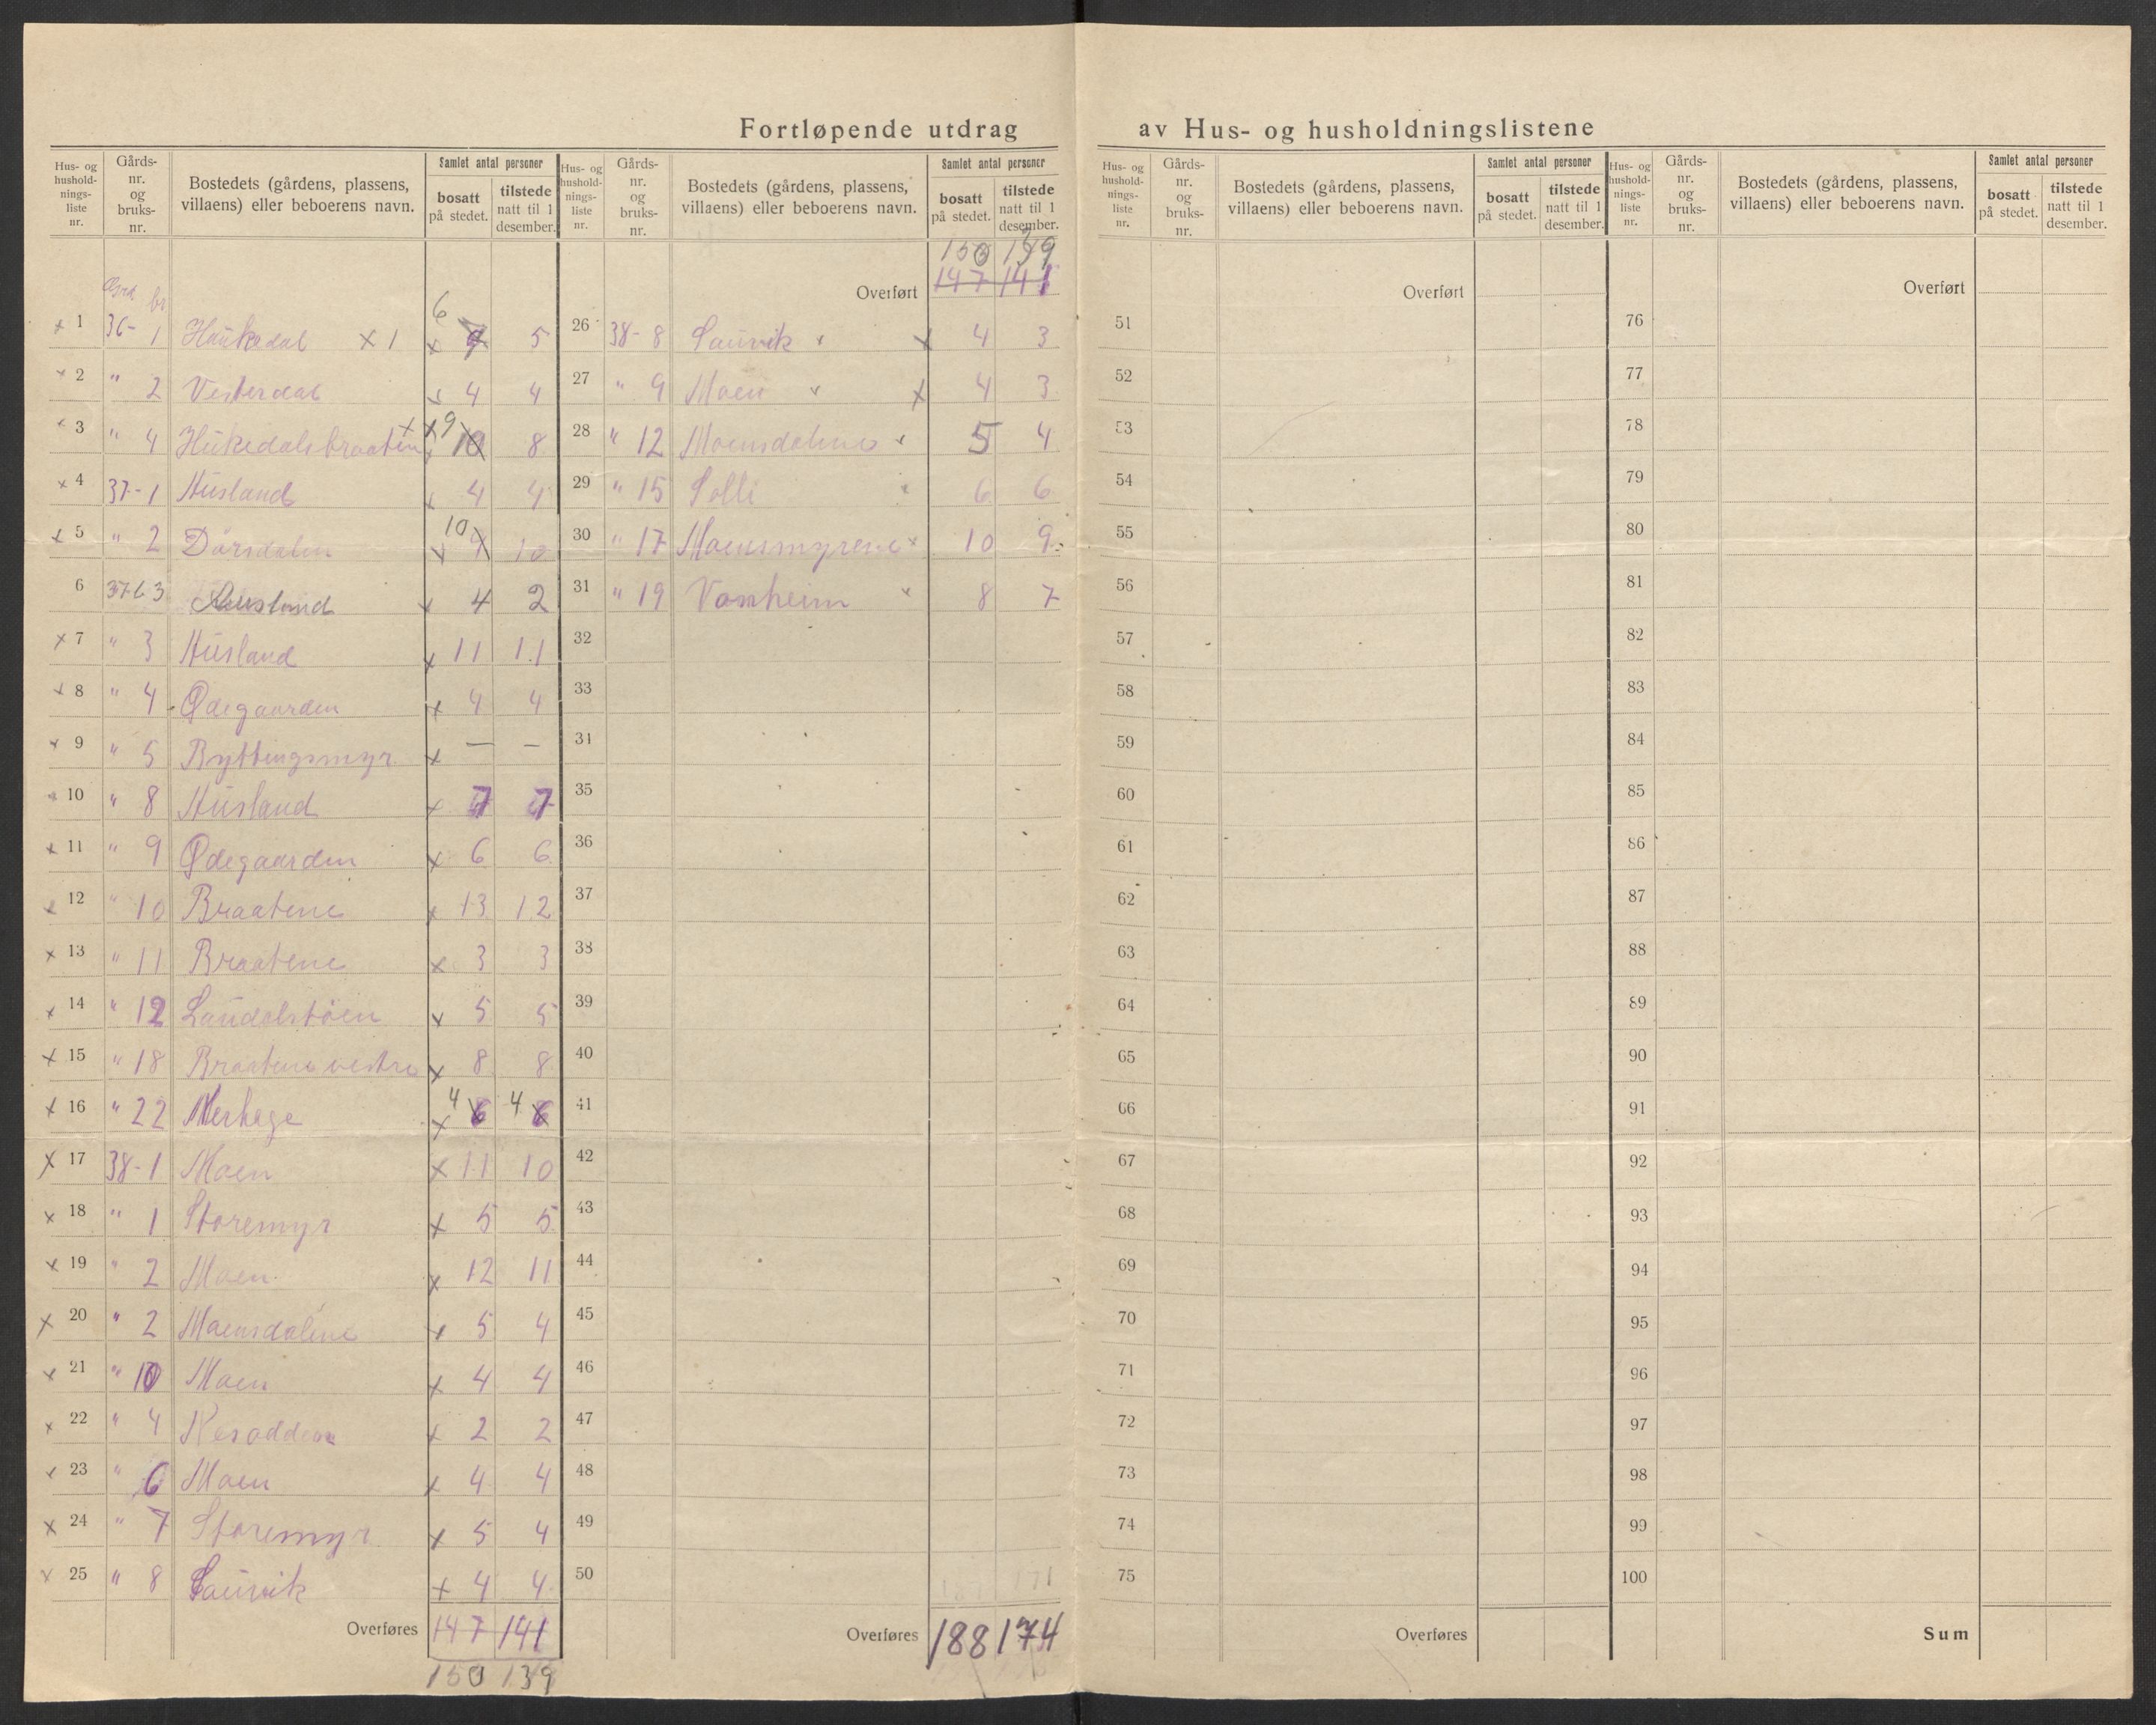 Fortløpende utdrag av Hus- og husholdningslistene
Hus- og husholdnings-liste nr. | Gårds-nr. og bruks-nr. | Bostedets (gårdens, plassens, villaens) eller beboerens navn. | Samlet antal personer | bosatt på stedet. | tilstede natt til 1 desember.
Grd br
x 1 36- 1 Haukedal x 1 x 6 5
x 2 " 2 Vesterdal x 4 4
x 3 " 4 Hukedalsbraaten x x 9 10 8
x 4 37-1 Husland x 4 4
x 5 " 2 Dørsdalen x 10 10
6 37 b 3 Husland x 4 2
x 7 " 3 Husland x 11 11
x 8 " 4 Ødegaarden x 4 4
x 9 " 5 Ryttingsmyr x — —
x 10 " 8 Husland x 7 7
x 11 " 9 Ødegaarden x 6 6
x 12 " 10 Braatene x 13 12
x 13 " 11 Braatene x 3 3
x 14 " 12 Laudalstøen x 5 5
x 15 " 18 Braatene vestre x 8 8
x 16 " 22 Merhege x 4 6 4 6
x 17 38-1 Moen x 11 10
x 18 " 1 Storemyr x 5 5
x 19 " 2 Moen x 12 11
x 20 " 2 Moensdalene x 5 4
x 21 " 10 Moen x 4 4
x 22 " 4 Nesodden x 2 2
x 23 " 6 Moen x 4 4
x 24 " 7 Storemyr x 5 4
x 25 " 8 Saurvik x 4 4
Overføres 147 141
150 139
Hus- og husholdnings-liste nr. | Gårds-nr. og bruks-nr. | Bostedets (gårdens, plassens, villaens) eller beboerens navn. | Samlet antal personer | bosatt på stedet. | tilstede natt til 1 desember.
150 139
Overført 147 141
26 38-8 Saurvik x 4 3
27 " 9 Moen x 4 3
28 " 12 Moensdalene 5 4
29 " 15 Solli 6 6
30 " 17 Moensmyrene 10 9
31 " 19 Vonheim 8 7
32
33
34
35
36
37
38
39
40
41
42
43
44
45
46
47
48
49
50 171
Overføres 188 174
Hus- og husholdnings-liste nr. | Gårds-nr. og bruks-nr. | Bostedets (gårdens, plassens, villaens) eller beboerens navn. | Samlet antal personer | bosatt på stedet. | tilstede natt til 1 desember.
Overført
51
52
53
54
55
56
57
58
59
60
61
62
63
64
65
66
67
68
69
70
71
72
73
74
75
Overføres
Hus- og husholdnings-liste nr. | Gårds-nr. og bruks-nr. | Bostedets (gårdens, plassens, villaens) eller beboerens navn. | Samlet antal personer | bosatt på stedet. | tilstede natt til 1 desember.
Overført
76
77
78
79
80
81
82
83
84
85
86
87
88
89
90
91
92
93
94
95
96
97
98
99
100
Sum